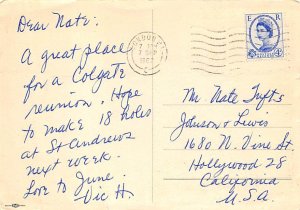 Dear Nate:
A great place
for a Colgate
reunion, Hope
to make 18 holes
at St Andrews
next week.
Love to June.
Vic H.
LONDON
7 SEP
E R
Mr. Nate Tufts
Johnson & Lewis
1680 N. Vine St
Hollywood 28
California
U.S.A.